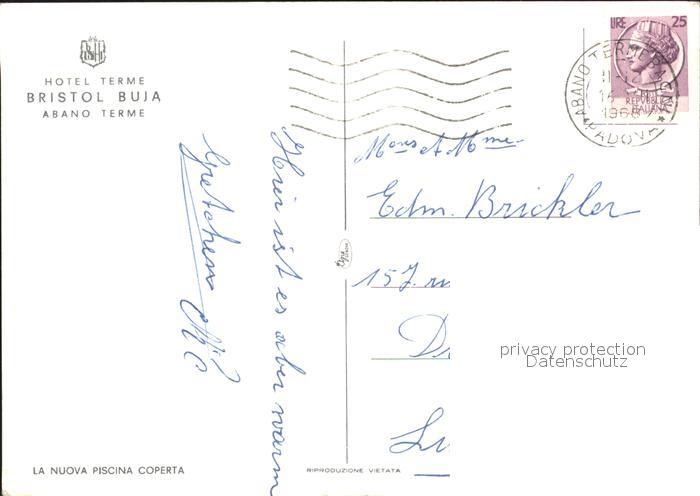 HOTEL TERME
BRISTOL BUJA
ABANO TERME
LA NUOVA PISCINA COPERTA
Hier ist es aber warm
Gretchen
RIPRODUZIONE VIETATA
LIRE 25
REPUBBLICA
ITALIANA
ABANO TERME
PADOVA
Mons et Mme
Edm. Brickler
157. ru
D
Lu
privacy protection
Datenschutz